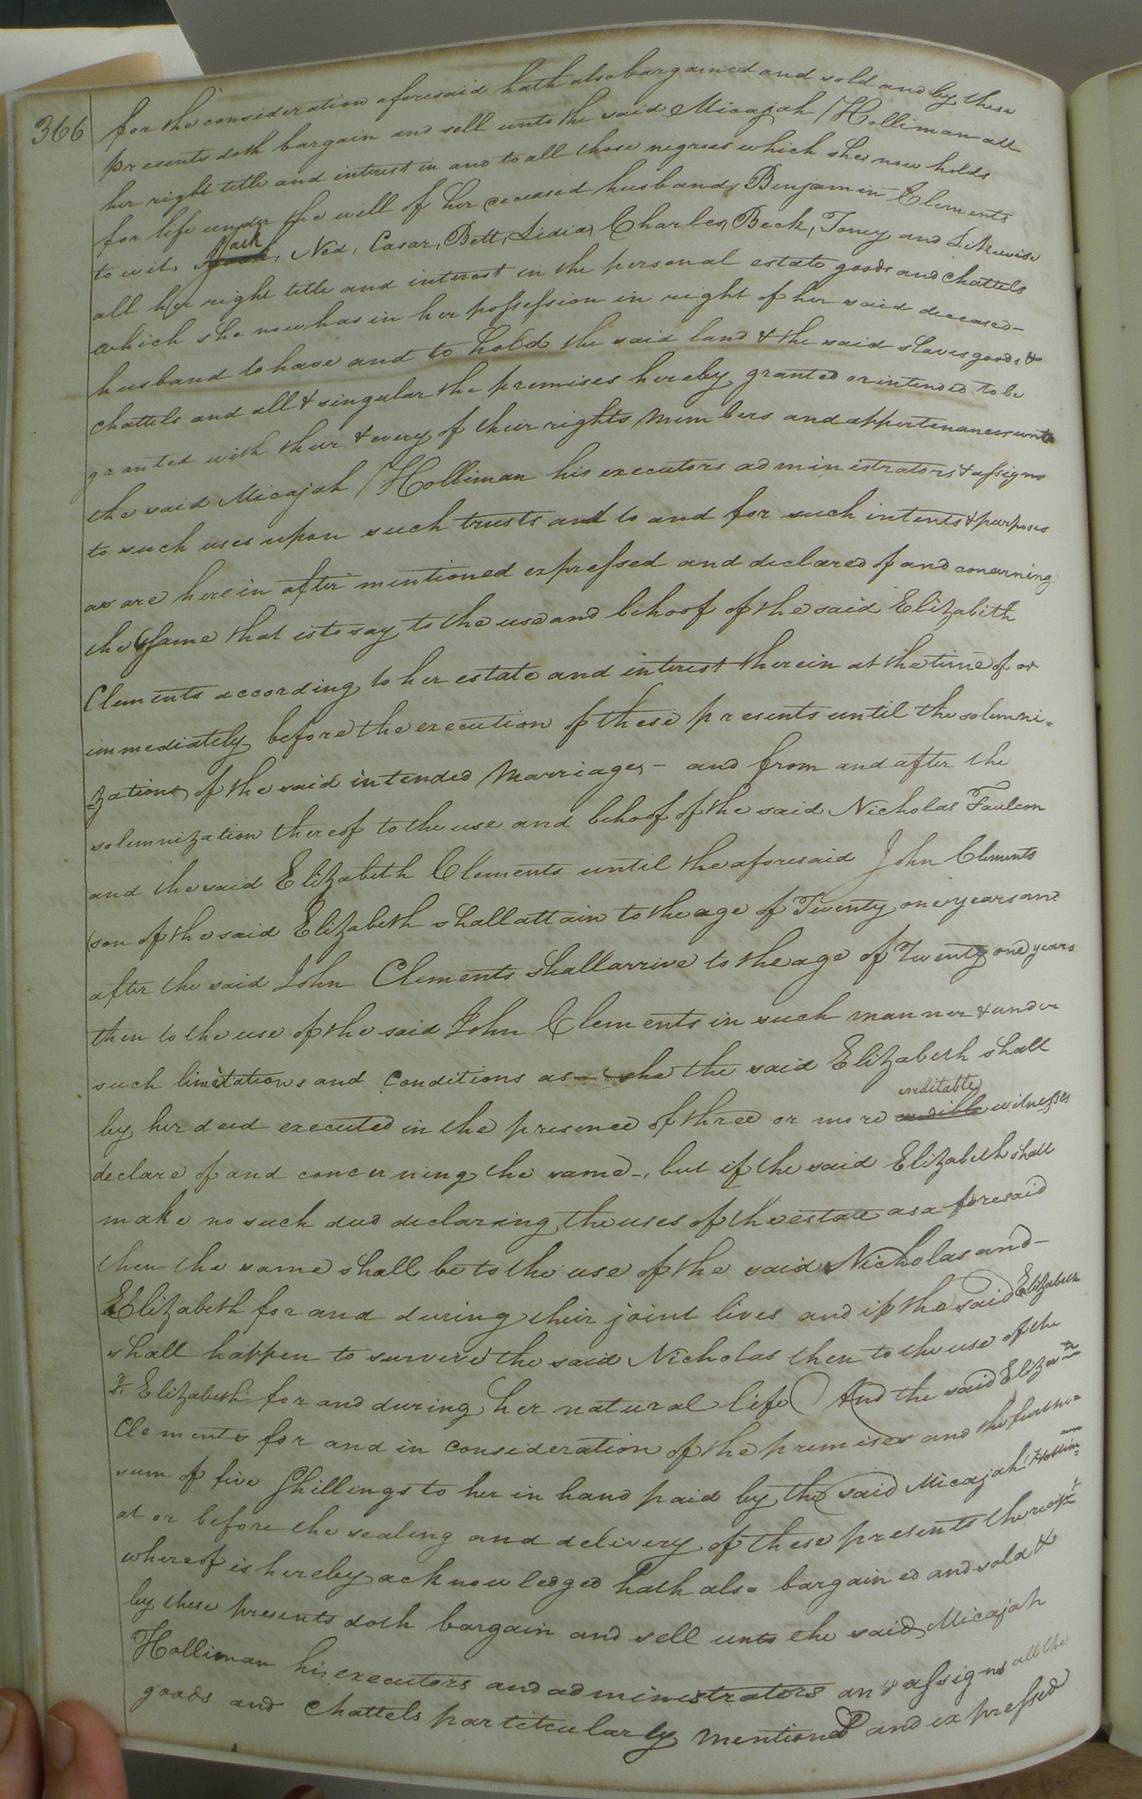 366
for the consideration aforesaid hath also bargained and sold and by these
presents doth bargain and sell unto the said Micajah Holliman all
her right title and interest in and to all those negroes which she now holds
for life under the will of her deceased husband, Benjamin Clements
to wit, Jack, Ned, Casar, Bett, Lidia, Charles, Beck, Toney and Likewise
all her right title and interest in the personal estate goods and chattels
which she now has in her possession in right of her said deceased-
husband to have and to hold the said land & the said slaves goods &
chattels and all & singular the premises hereby granted or intended to be
granted with their & every of their rights members and appertenances unto
the said Micajah Holliman his executors administrators & assigns
to such uses upon such trusts and to and for such intents & purposes
as are herein after mentioned expressed and declared of and concerning
the same that is to say to the use and behoof of the said Elizabeth
Clements according to her estate and interest therein at the time of or
immediately before the execution of these presents until the solemni-
zation of the said intended marriage, - and from and after the
solemnization thereof to the use and behoof of the said Nicholas Faulcon
and the said Elizabeth Clements until the aforesaid John Clements
son of the said Elizabeth shall attain to the age of Twenty one years and
after the said John Clements shall arrive to the age of Twenty one years
then to the use of the said John Clements in such manner & under
such limitations and conditions as she the said Elizabeth shall
by her deed executed in the presence of three or more creditable witnesses
declare of and concerning the same -, but if the said Elizabeth shall
make no such deed declaring the uses of the estate as aforesaid
then the same shall be to the use of the said Nicholas and -
Elizabeth for and during their joint lives and if the said Elizabeth
shall happen to survive the said Nicholas then to the use of the
sd. Elizabeth for and during her natural life And the said Elizath
Clements for and in consideration of the premises and the further
sum of five Shillings to her in hand paid by the said Micajah Holliman
at or before the sealing and delivery of these presents the recpt
whereof is hereby acknowledged hath also bargained and sold &
by these presents doth bargain and sell unto the said Micajah
Holliman his executors and administrators an & assigns all the
goods and chattels partitcularly mentioned and expressed